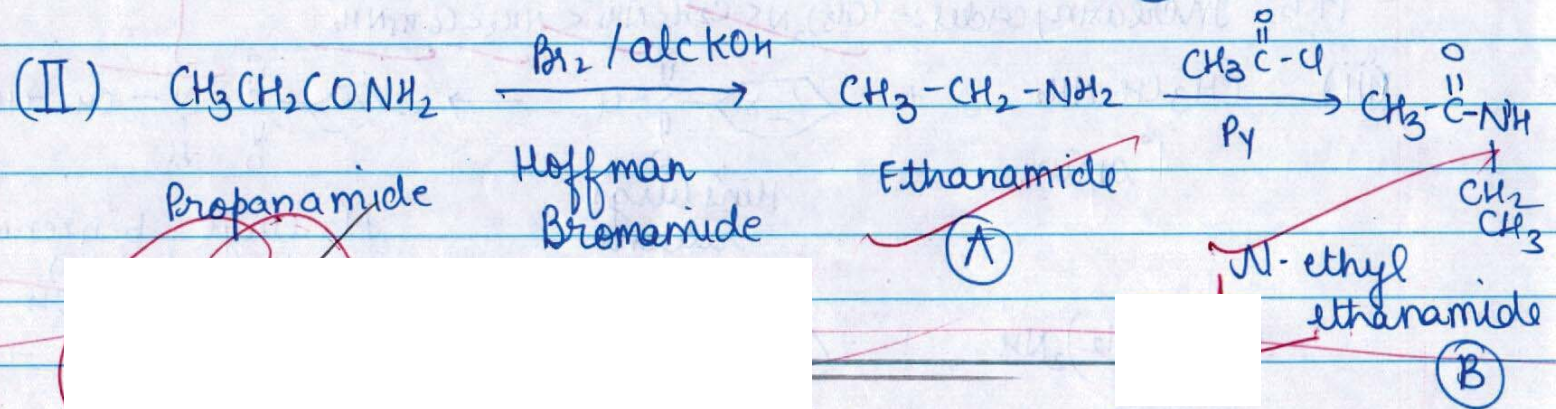 (II) CH₃CH₂CONH₂ Br₂/alcKOH → CH₃-CH₂-NH₂ CH₃C(=O)-Cl / Py → CH₃-C(=O)-NH
CH₂
CH₃
Propanamide Hoffman Ethanamide
Bromamide (A)
N-ethyl
ethanamide
(B)